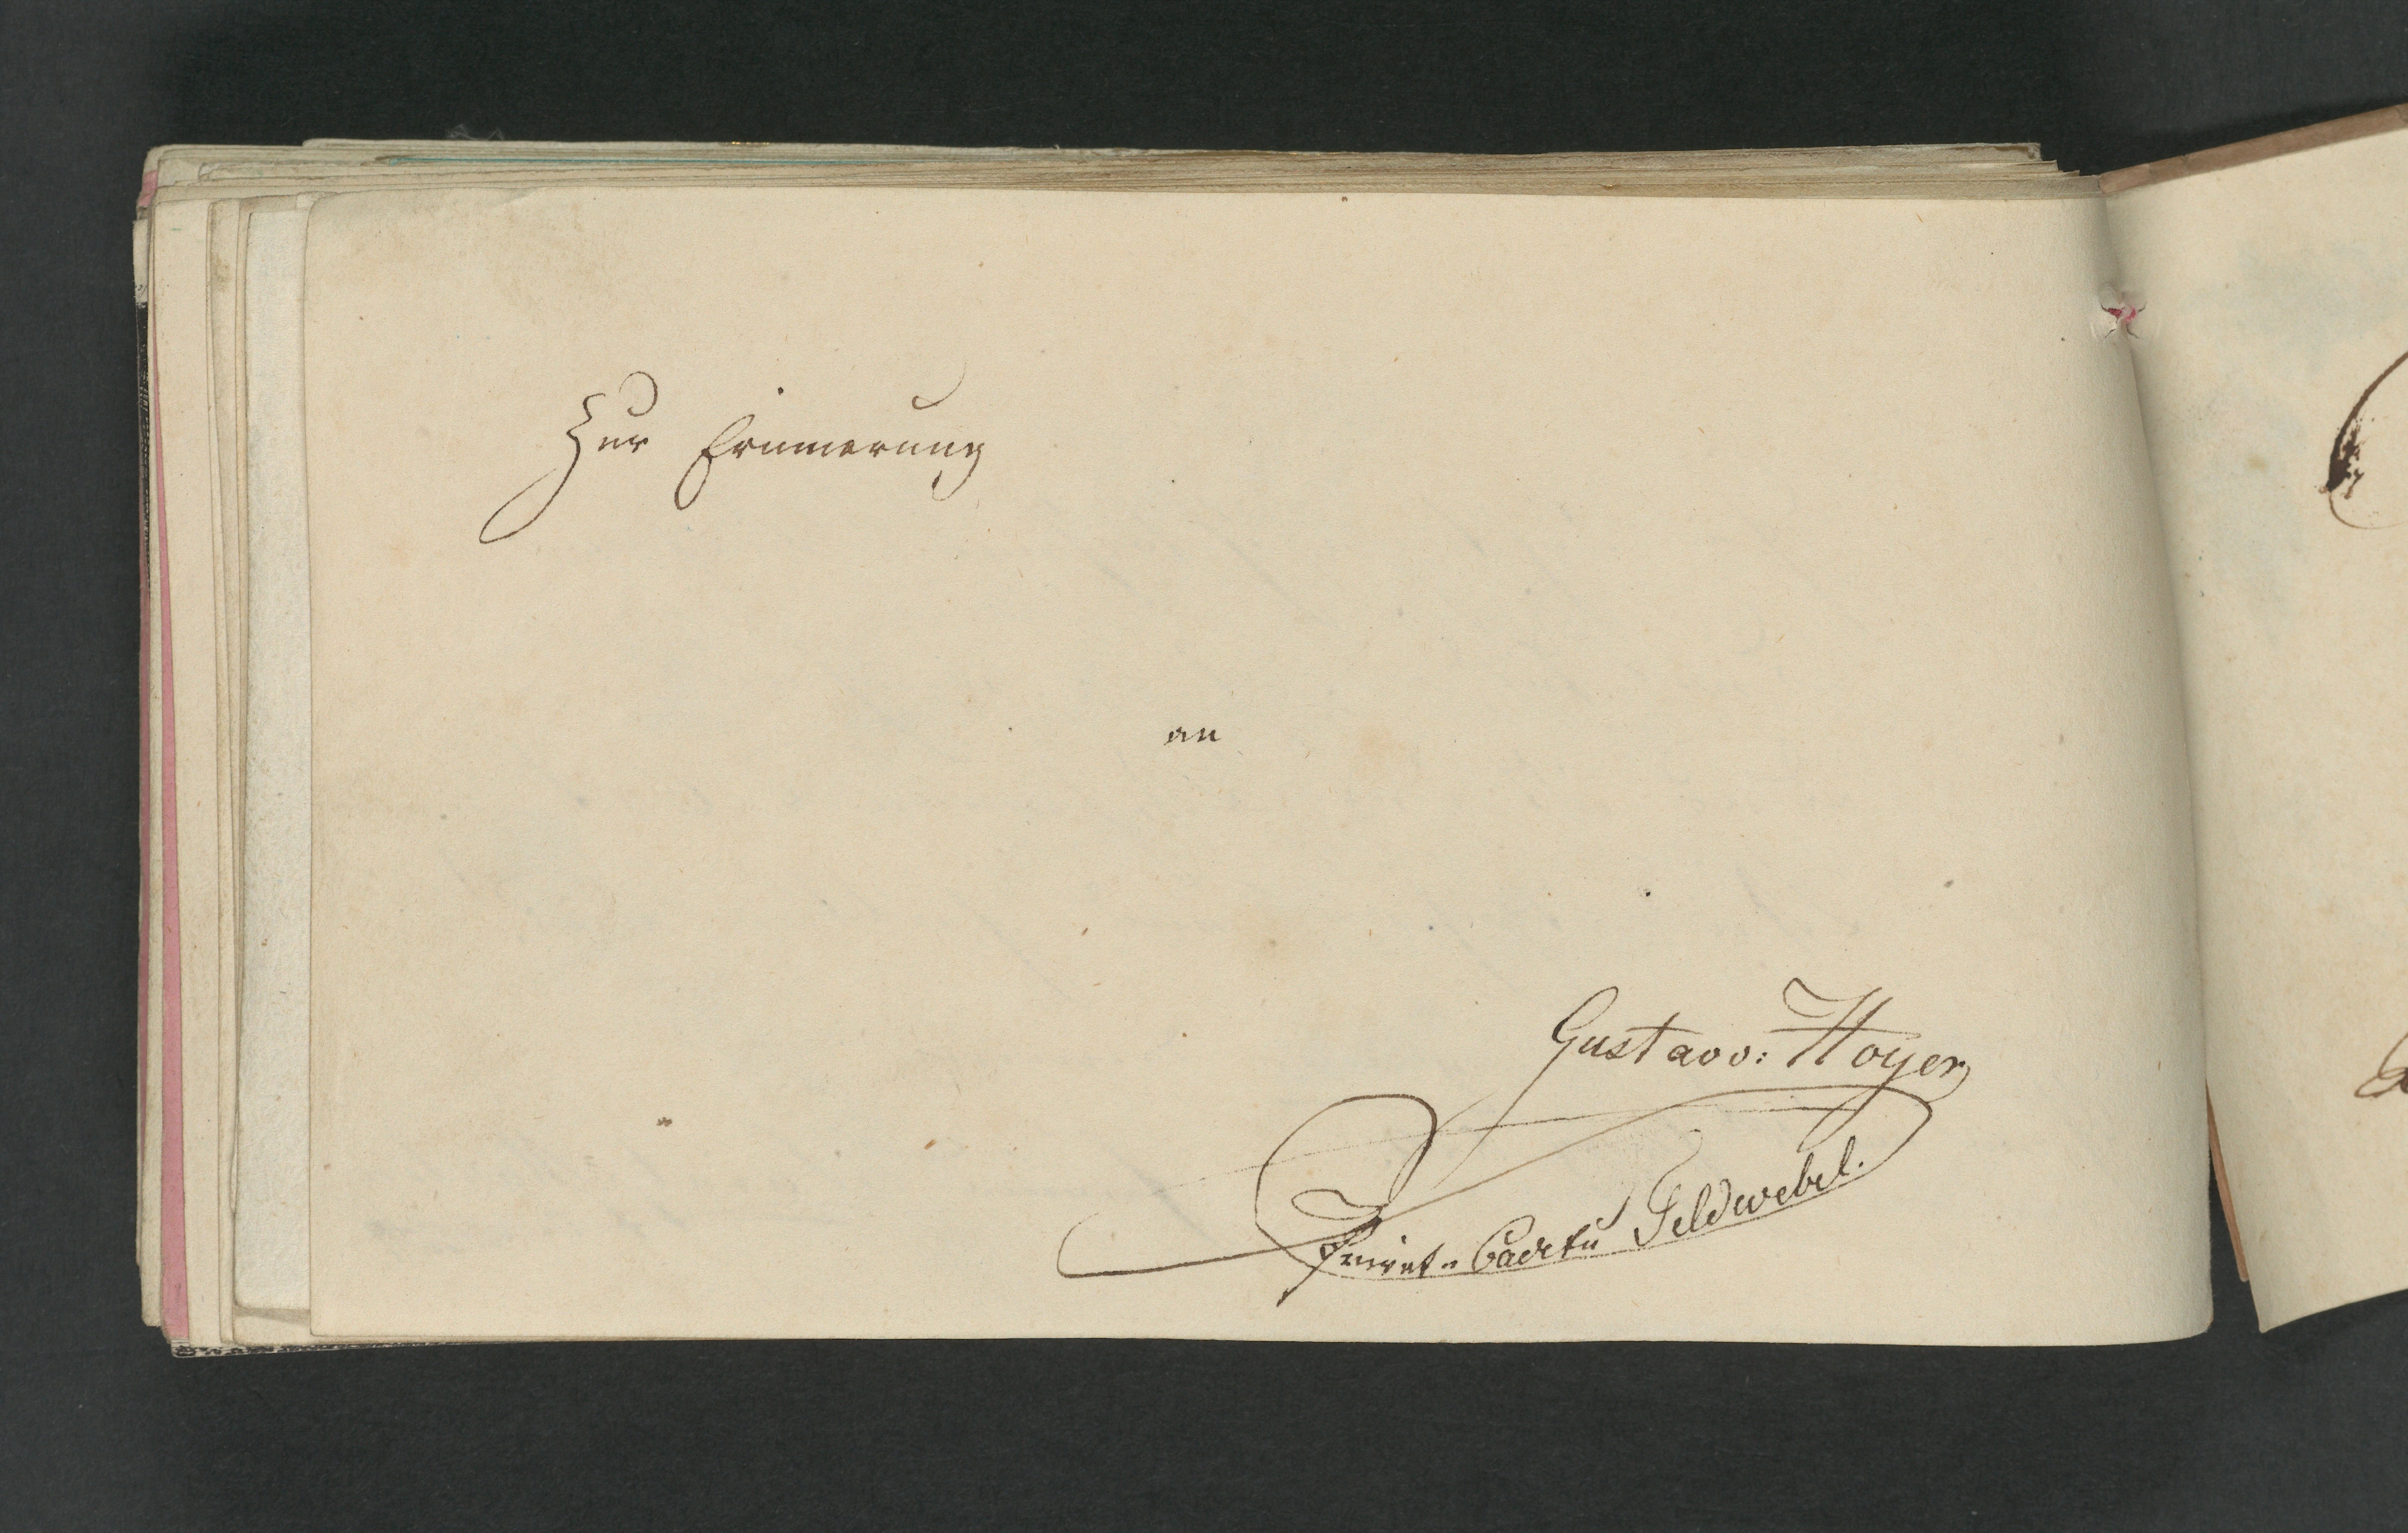 Zur Erinnerung
an
Gustav v: Hoyer
Privat-Cadetu Feldwebel.